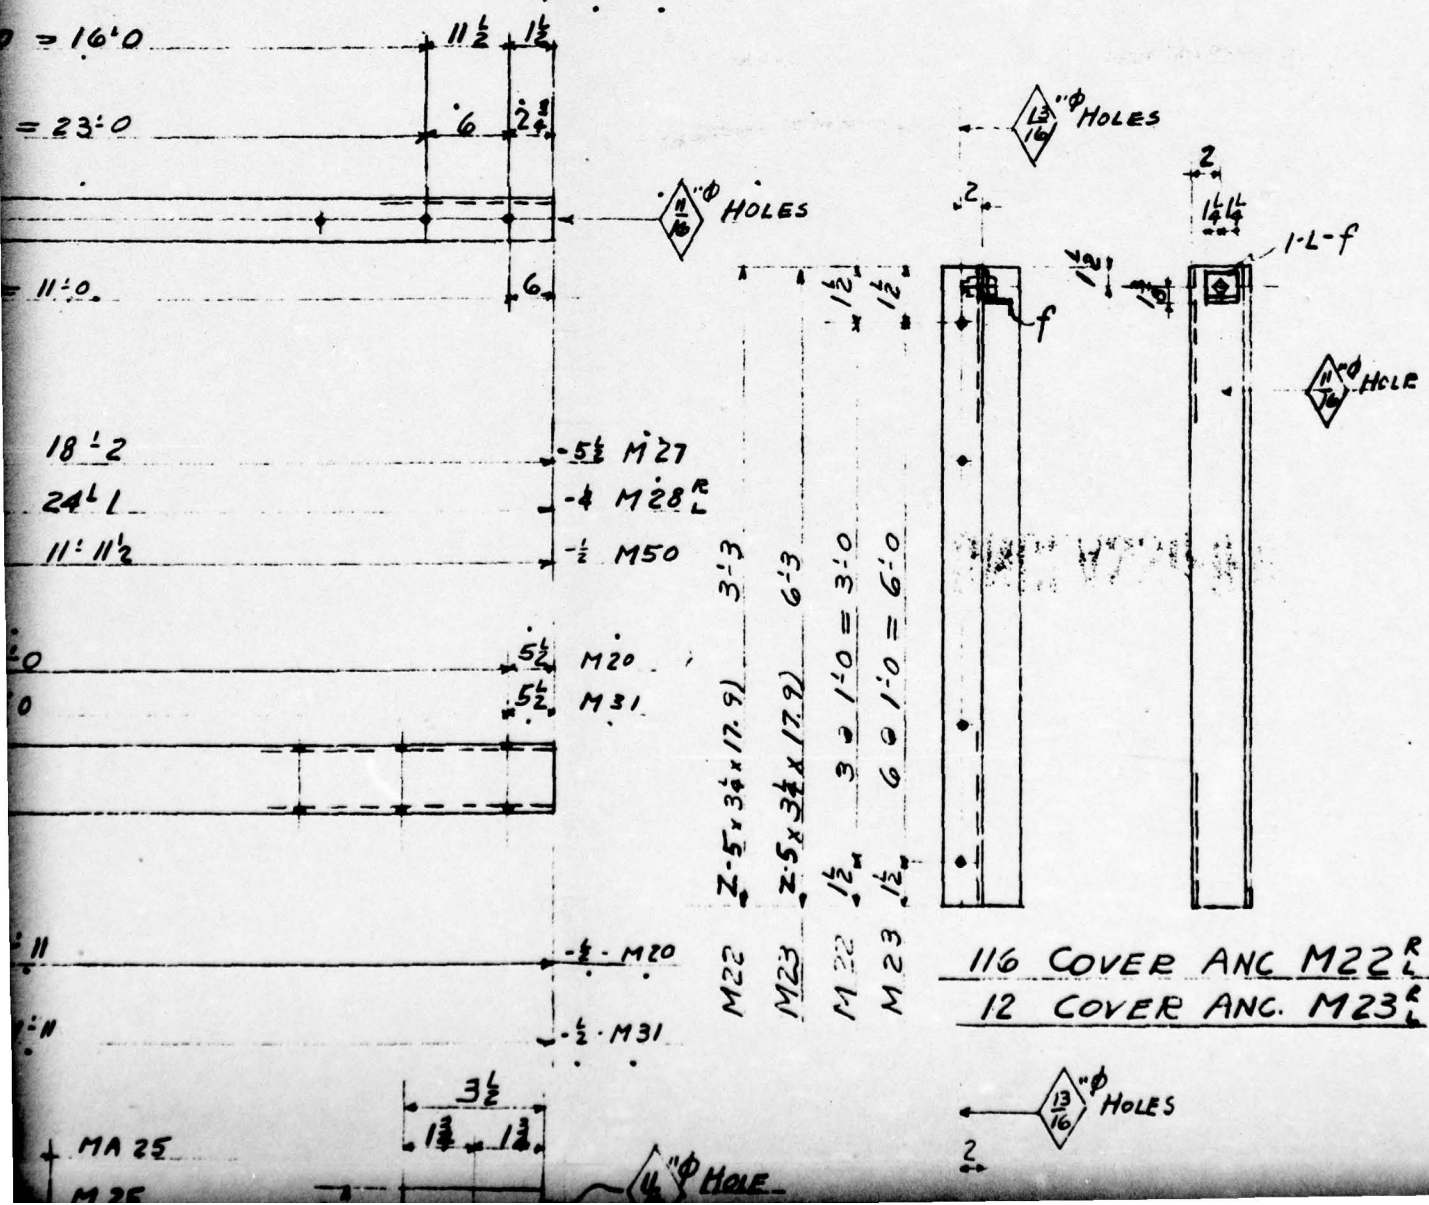 = 16'-0 11 1/2 1 1/2
= 23'-0 6 2 3/4
11/16 "Φ HOLES
= 11'-0 6
18'-2 -5 1/2 M27
24'-1 -1/4 M28 R L
11'-11 1/2 -1/2 M50
-0 5 1/2 M20
0 5 1/2 M31
-11 -1/2 - M20
-11 -1/2 - M31
3 1/2
1 3/4 1 3/4
MA 25
M 25
11/16 "Φ HOLE
M22 Z-5 x 3 1/4 x 17.9) 3'-3
M23 Z-5 x 3 1/4 x 17.9) 6'-3
M22 1 1/2 3 @ 1'-0 = 3'-0 1 1/2
M23 1 1/2 6 @ 1'-0 = 6'-0 1 1/2
13/16 "Φ HOLES
2
f
2
1 1/4 1 1/4
1-L-f
1 1/2
11/16 "Φ HOLE
116 COVER ANC M22 R L
12 COVER ANC. M23 R L
13/16 "Φ HOLES
2